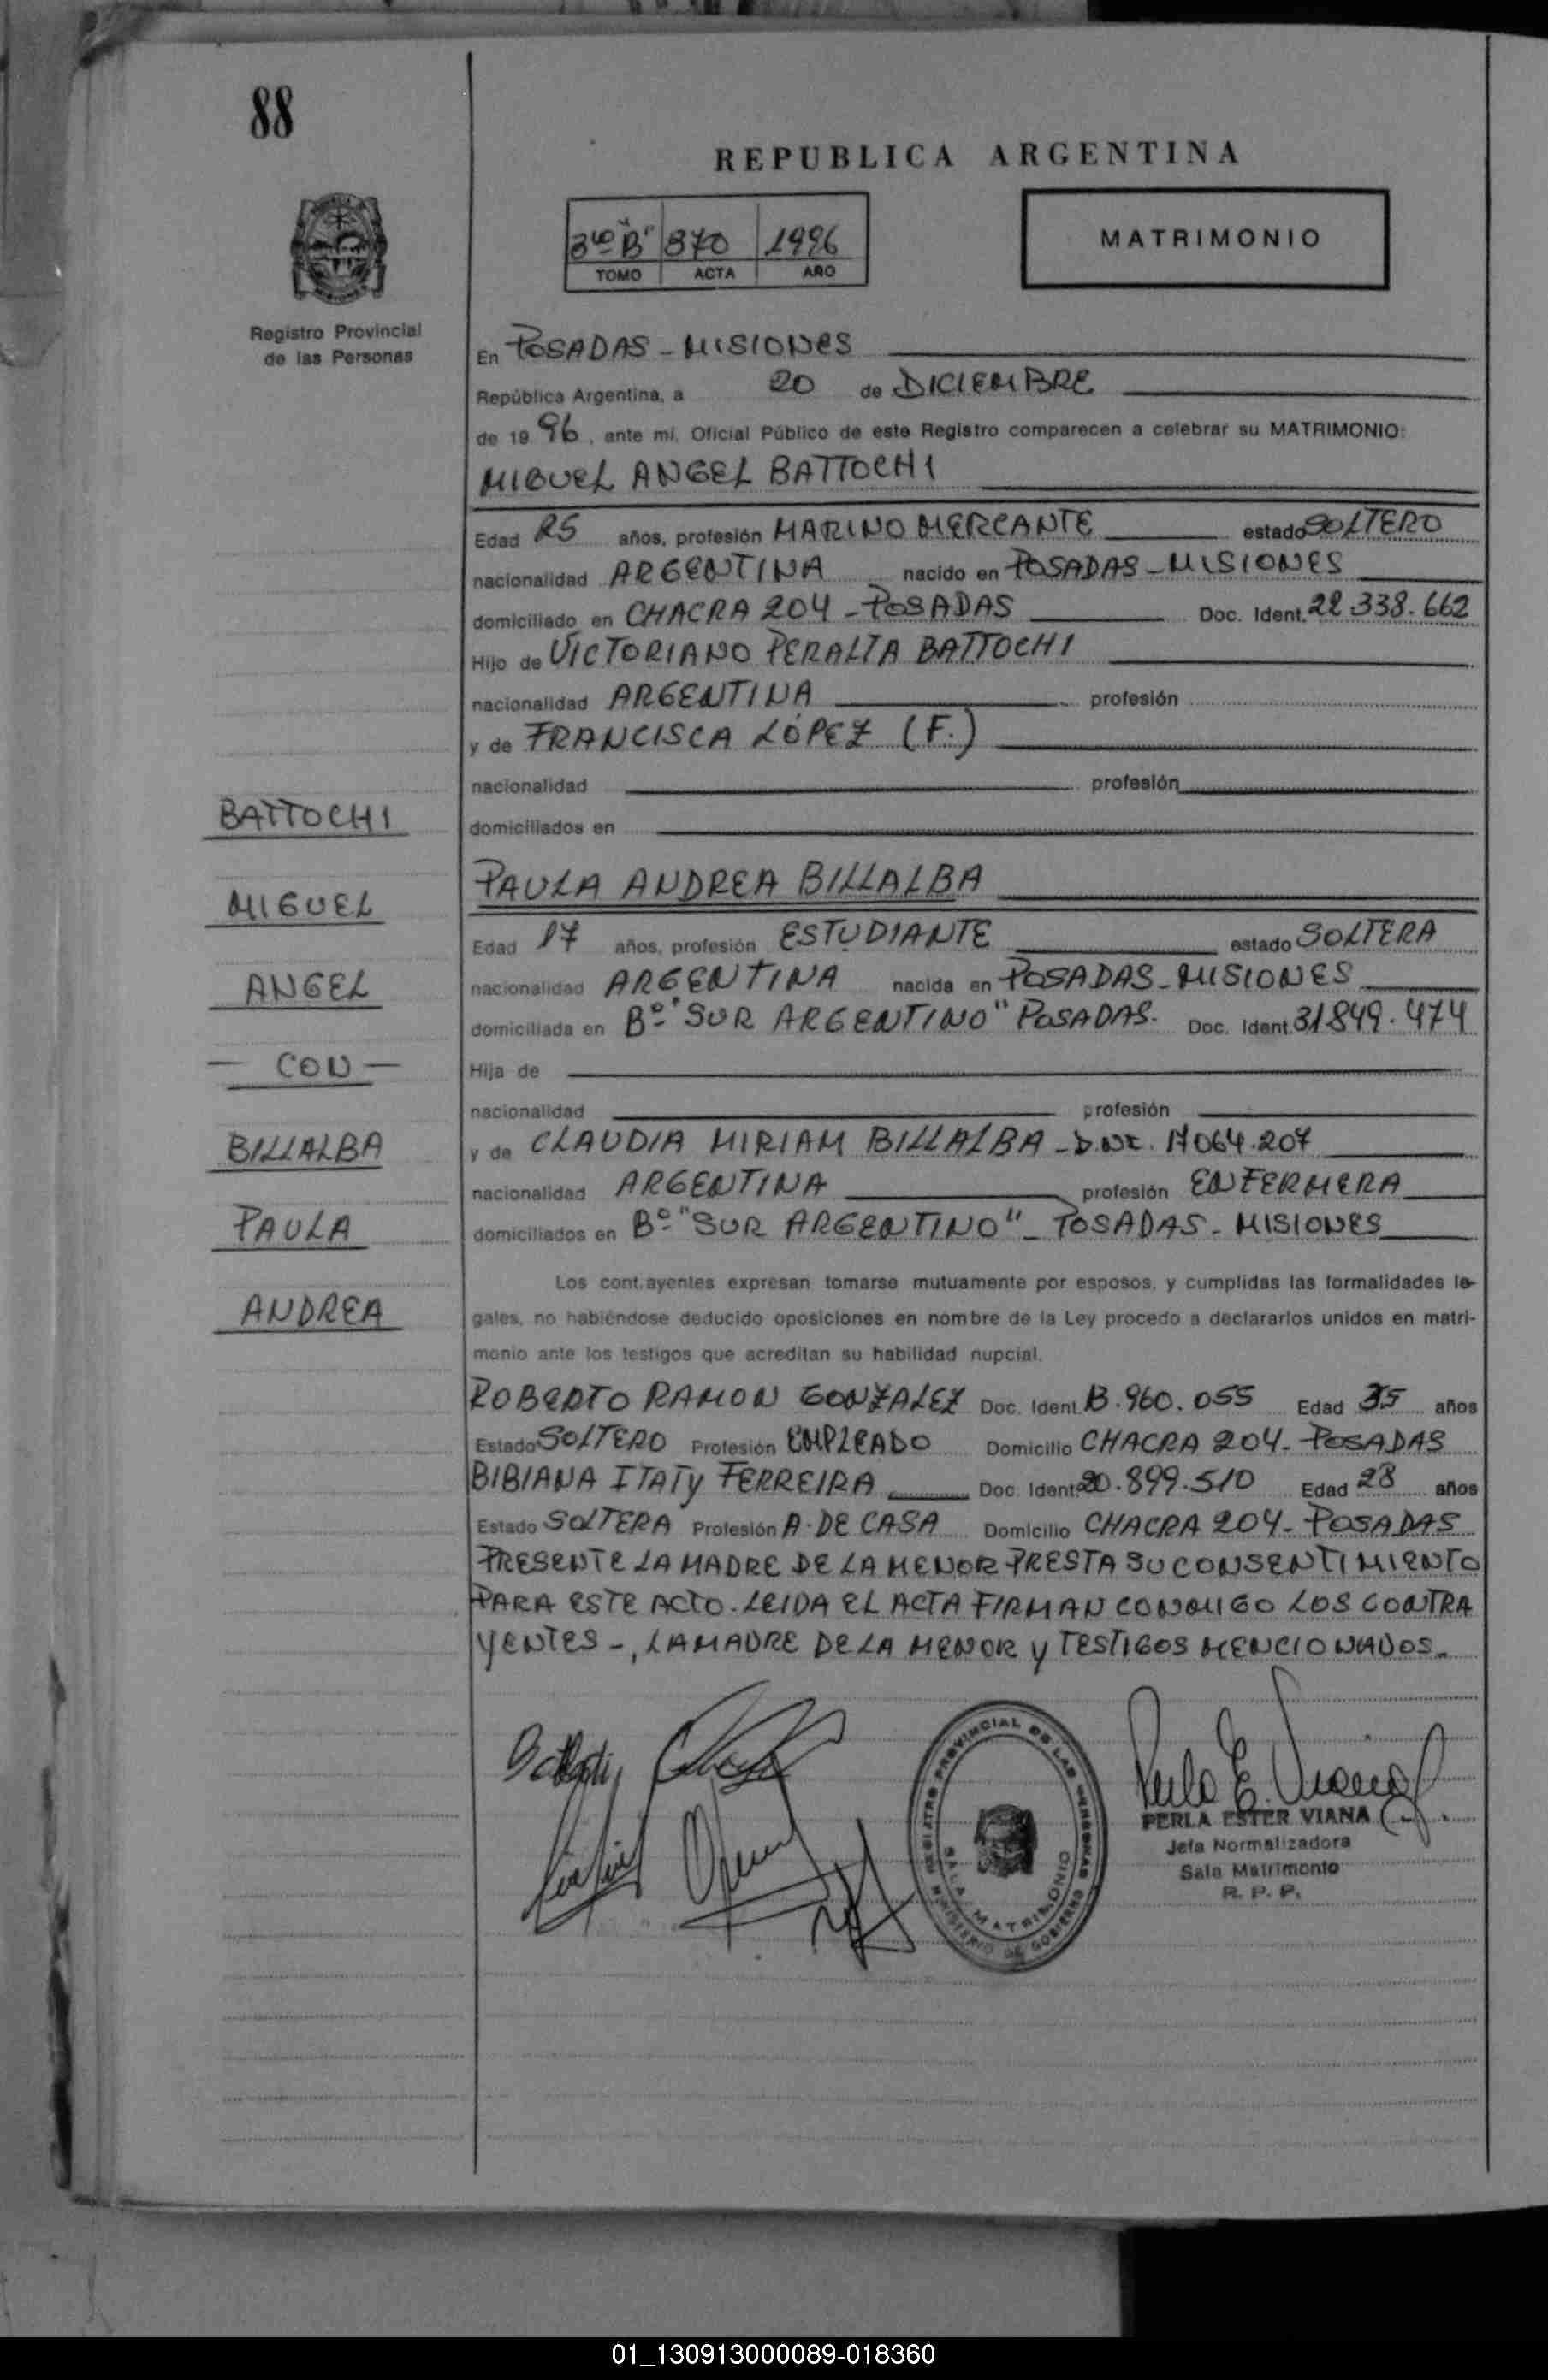 88
REPUBLICA ARGENTINA
3ro "B" 870 1996
TOMO ACTA AÑO
MATRIMONIO
Registro Provincial
de las Personas
En POSADAS - MISIONES
República Argentina, a 20 de DICIEMBRE
de 19 96, ante mí, Oficial Público de este Registro comparecen a celebrar su MATRIMONIO:
MIGUEL ANGEL BATTOCHI
Edad 25 años, profesión MARINO MERCANTE estado SOLTERO
nacionalidad ARGENTINA nacido en POSADAS - MISIONES
domiciliado en CHACRA 204 - POSADAS Doc. Ident. 22.338.662
Hijo de VICTORIANO PERALTA BATTOCHI
nacionalidad ARGENTINA profesión
y de FRANCISCA LÓPEZ (F.)
nacionalidad profesión
domiciliados en
PAULA ANDREA BILLALBA
Edad 17 años, profesión ESTUDIANTE estado SOLTERA
nacionalidad ARGENTINA nacida en POSADAS - MISIONES
domiciliada en Bº "SUR ARGENTINO" POSADAS. Doc. Ident. 31849.474
Hija de
nacionalidad profesión
y de CLAUDIA MIRIAM BILLALBA - D.NI. 17064.207
nacionalidad ARGENTINA profesión ENFERMERA
domiciliados en Bº "SUR ARGENTINO" - POSADAS - MISIONES
Los contrayentes expresan tomarse mutuamente por esposos, y cumplidas las formalidades le-
gales, no habiéndose deducido oposiciones en nombre de la Ley procedo a declararlos unidos en matri-
monio ante los testigos que acreditan su habilidad nupcial.
ROBERTO RAMON GONZALEZ Doc. Ident. 13.960.055 Edad 35 años
Estado SOLTERO Profesión EMPLEADO Domicilio CHACRA 204 - POSADAS
BIBIANA ITATY FERREIRA Doc. Ident. 20.899.510 Edad 28 años
Estado SOLTERA Profesión A. DE CASA Domicilio CHACRA 204 - POSADAS
PRESENTE LA MADRE DE LA MENOR PRESTA SU CONSENTIMIENTO
PARA ESTE ACTO. LEIDA EL ACTA FIRMAN CONMIGO LOS CONTRA
YENTES -, LA MADRE DE LA MENOR Y TESTIGOS MENCIONADOS.
BATTOCHI
MIGUEL
ANGEL
- CON -
BILLALBA
PAULA
ANDREA
REGISTRO PROVINCIAL DE LAS PERSONAS
SALA MATRIMONIO
MINISTERIO DE GOBIERNO
Perla E. Viana
PERLA ESTER VIANA
Jefa Normalizadora
Sala Matrimonio
R. P. P.
01_130913000089-018360